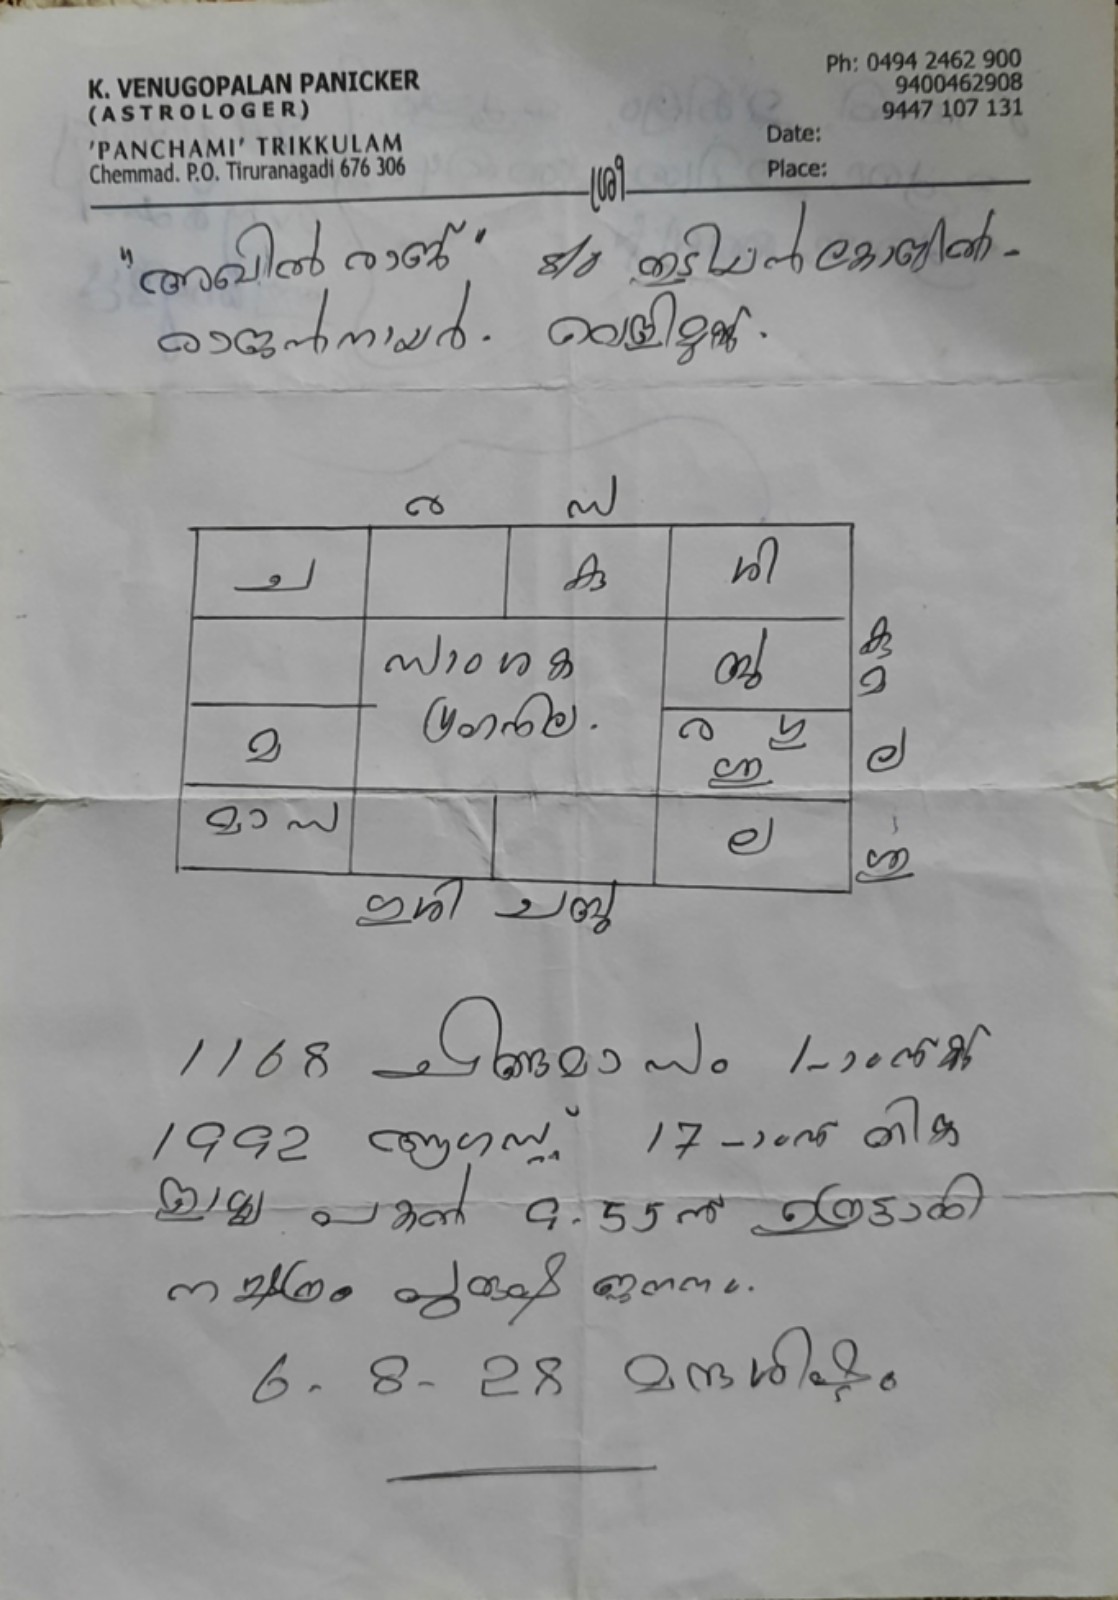 K. VENUGOPALAN PANICKER
(ASTROLOGER)
'PANCHAMI' TRIKKULAM
Chemmad. P.O. Tiruranagadi 676 306
Ph: 0494 2462 900
9400462908
9447 107 131
Date:
Place:
ശ്രീ
"അഖിൽ രാജ്" S/o ഇടിയൻകോണ്ടിൽ-
രാജൻനായർ. വെളിമുക്ക്.
ര സ
ച കു ശി
സാംശക ബു കു മ
ഗ്രഹനില.
മ ര ഗു ശു ല
മാ സ ല ശു
ഗു ശി ച ബു
1168 ചിങ്ങമാസം 1-ാംനുക്ക്
1992 ആഗസ്റ്റ് 17-ാംനു തിങ്ക
ളാഴ്ച പകൽ 9.55ന് ഉത്രട്ടാതി
നക്ഷത്രം പുരുഷ ജനനം.
6-8-28 മന്ദശിഷ്ടം